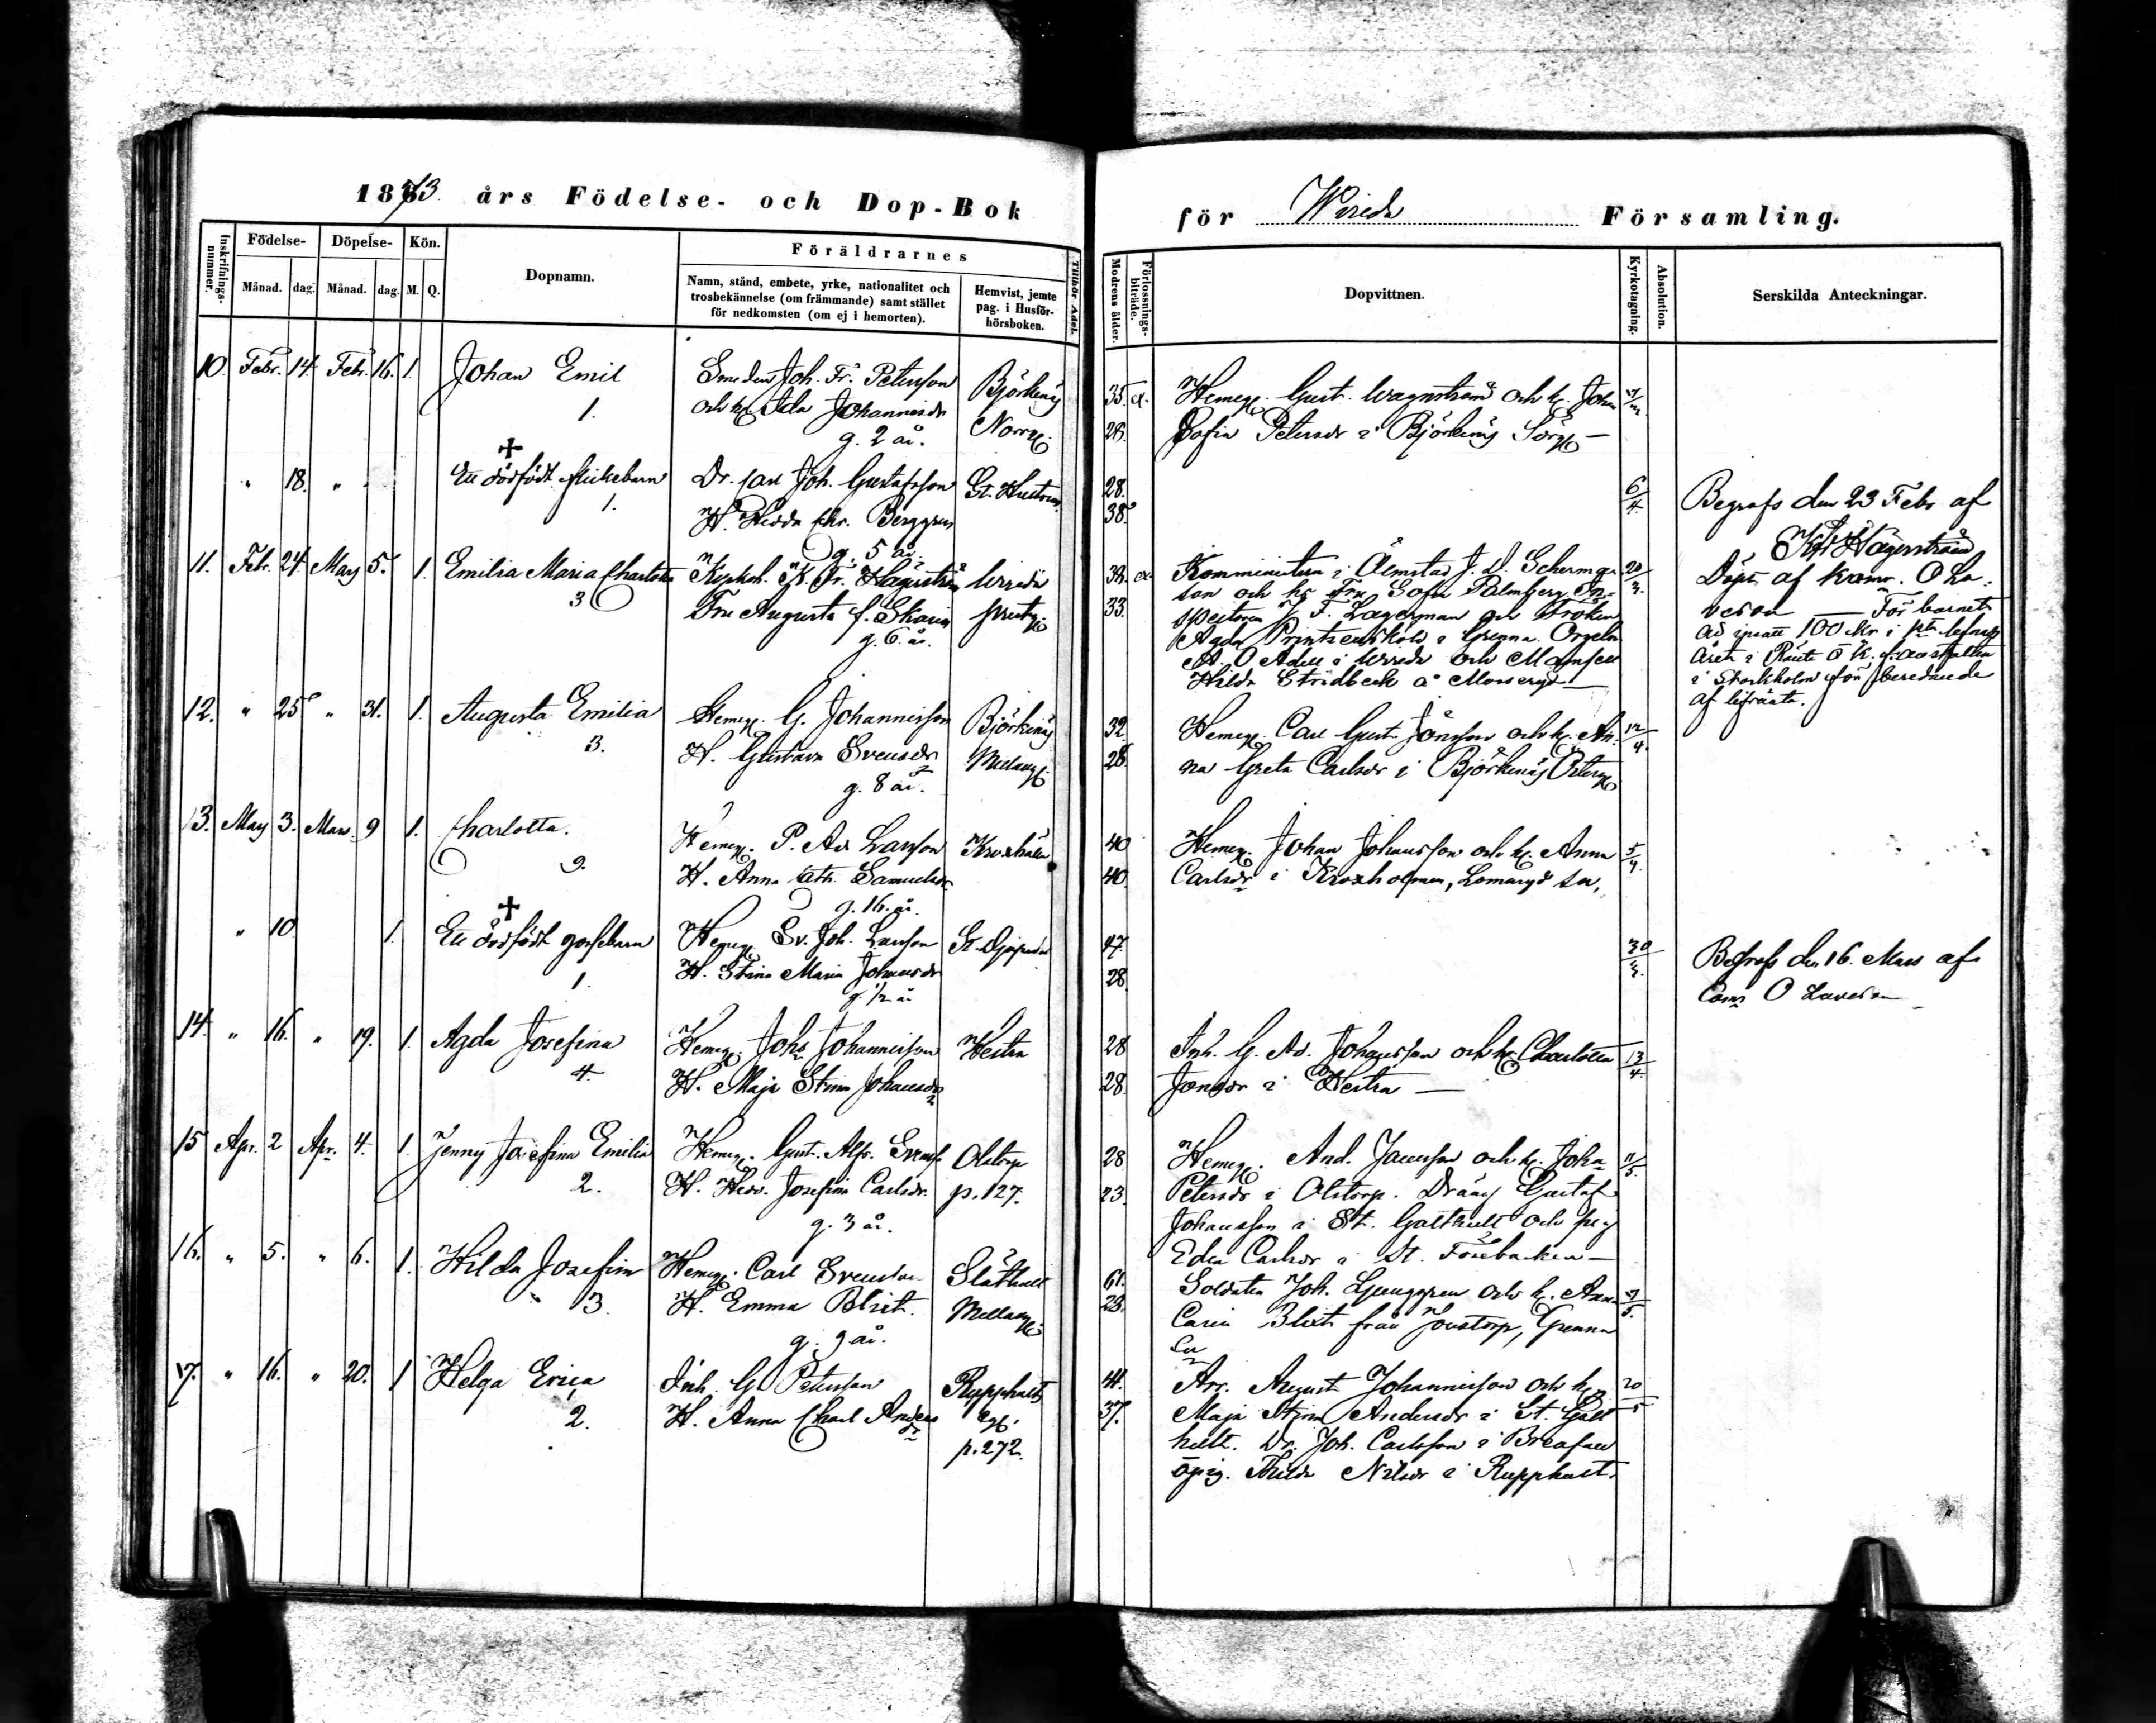 1873 års Födelse- och Dop-Bok
för Wireda Församling.
Inskrifnings-nummer.
Födelse-
Månad. dag.
Döpelse-
Månad. dag.
Kön.
M. Q.
Dopnamn.
Föräldrarnes
Namn, stånd, embete, yrke, nationalitet och
trosbekännelse (om främmande) samt stället
för nedkomsten (om ej i hemorten).
Hemvist, jemte
pag. i Husför-
hörsboken.
Tillhör Adel.
Modrens ålder.
Förlossnings-biträde.
Dopvittnen.
Kyrkotagning.
Absolution.
Serskilda Anteckningar.
10. Febr. 14. Febr. 16. 1. Johan Emil
1.
Smeden Joh. Fr. Peterson
och h. Ida Johannesdr
g. 2 år.
Björkenäs
Norrg.
35.
26.
Hemeg. Gust. Wagnström och h. Joha
Sofia Petersdr i Björkenäs Sörg —
" 18. "
Ett dödfödt flickebarn
1.
Dr. Carl Joh. Gustafsson
H. Hedda Chr. Berggren
g. 5 år.
28.
38.
6/4
Begrafs den 23 Febr af
Hägerström
11. Febr. 24. Mars 5. 1. Emilia Maria Charlotta
3
Kyrkoh. K. Fr. Hägerström
Fru Augusta f. Skarin
g. 6 år.
Wireda
prestg.
38.
33.
Komministern i Ölmstad J. D. Scherman
son och hs Fru Sofia Palmberg, In-
spektoren J. F. Lagerman och Fröken
Agda Printzensköld i Grenna. Orgeln.
A. O Adell i Wireda och Mamsell
Hilda Stridbeck å Mosseryd —
Döpt af kom. O La-
verson — För barnet
100 Kr i
året i Ränte o K. anstalten
i Stockholm för beredande
af lifränta.
12. " 25 " 31. 1. Augusta Emilia
3.
Hemeg. G. Johannisson
H. Gustava Svensdr
g. 8 år.
Björkenäs
Mellang.
32.
28.
Hemeg. Carl Gust. Jonsson och h. An-
na Greta Carlsdr i Björkenäs Österg
12/4.
13. Mars 3. Mars 9 1. Charlotta.
9.
Hemeg. P. Ad Larsson
H. Anna Cath. Samuelsdr
g. 16. år.
40
40.
Hemeg. Johan Johansson och h. Anna
Carlsdr i Kroxholmen, Lommaryd sn.
5/4.
" 10. 1.
Ett dödfödt gossebarn
1.
Hemeg Sv. Joh. Larsson
H. Stina Maria Johansdr
g. 1/2 år
47.
28.
30/3.
Begrafs den 16. Mars af
Com O Laverson
14. " 16. " 19. 1. Agda Josefina
4.
Hemeg. Johs Johannisson
H. Maja Stina Johansdr
Hestra
28
28.
Inh. G. Ad. Johansson och h. Charlotta
Jonsdr i Hestra —
13/4.
15 Apr. 2 Apr. 4. 1. Jenny Josefina Emilia
2.
Hemeg. Gust. Alfr. Svenss
H. Hedv. Josefina Carlsdr.
g. 3 år.
Olstorp
p. 127.
28
23.
Hemeg. And. Jaensson och h. Joha
Petersdr i Olstorp. Dräng Gustaf
Johansson i St. Galthult och pig
Eda Carlsdr i St. Fösebacken —
11/5.
16. " 5. " 6. 1. Hilda Josefina
3.
Hemeg. Carl Svenson
H. Emma Blixt.
g. 9 år.
Släthult
Mellang.
61.
28.
Soldaten Joh. Ljunggren och h. Anna
Carin Blixt från Jonstorp, Grenna
Sn
17. " 16. " 20. 1 Helga Erica
2.
Inh. G. Peterson
H. Anna Charl Anders
dr
Rupphult
p. 272.
41.
37.
Arr. August Johannisson och h.
Maja Stina Andersdr i St. Galt
hult. Dr. Joh. Carlsson i
Hilda Nilsdr i Rupphult.
20/5